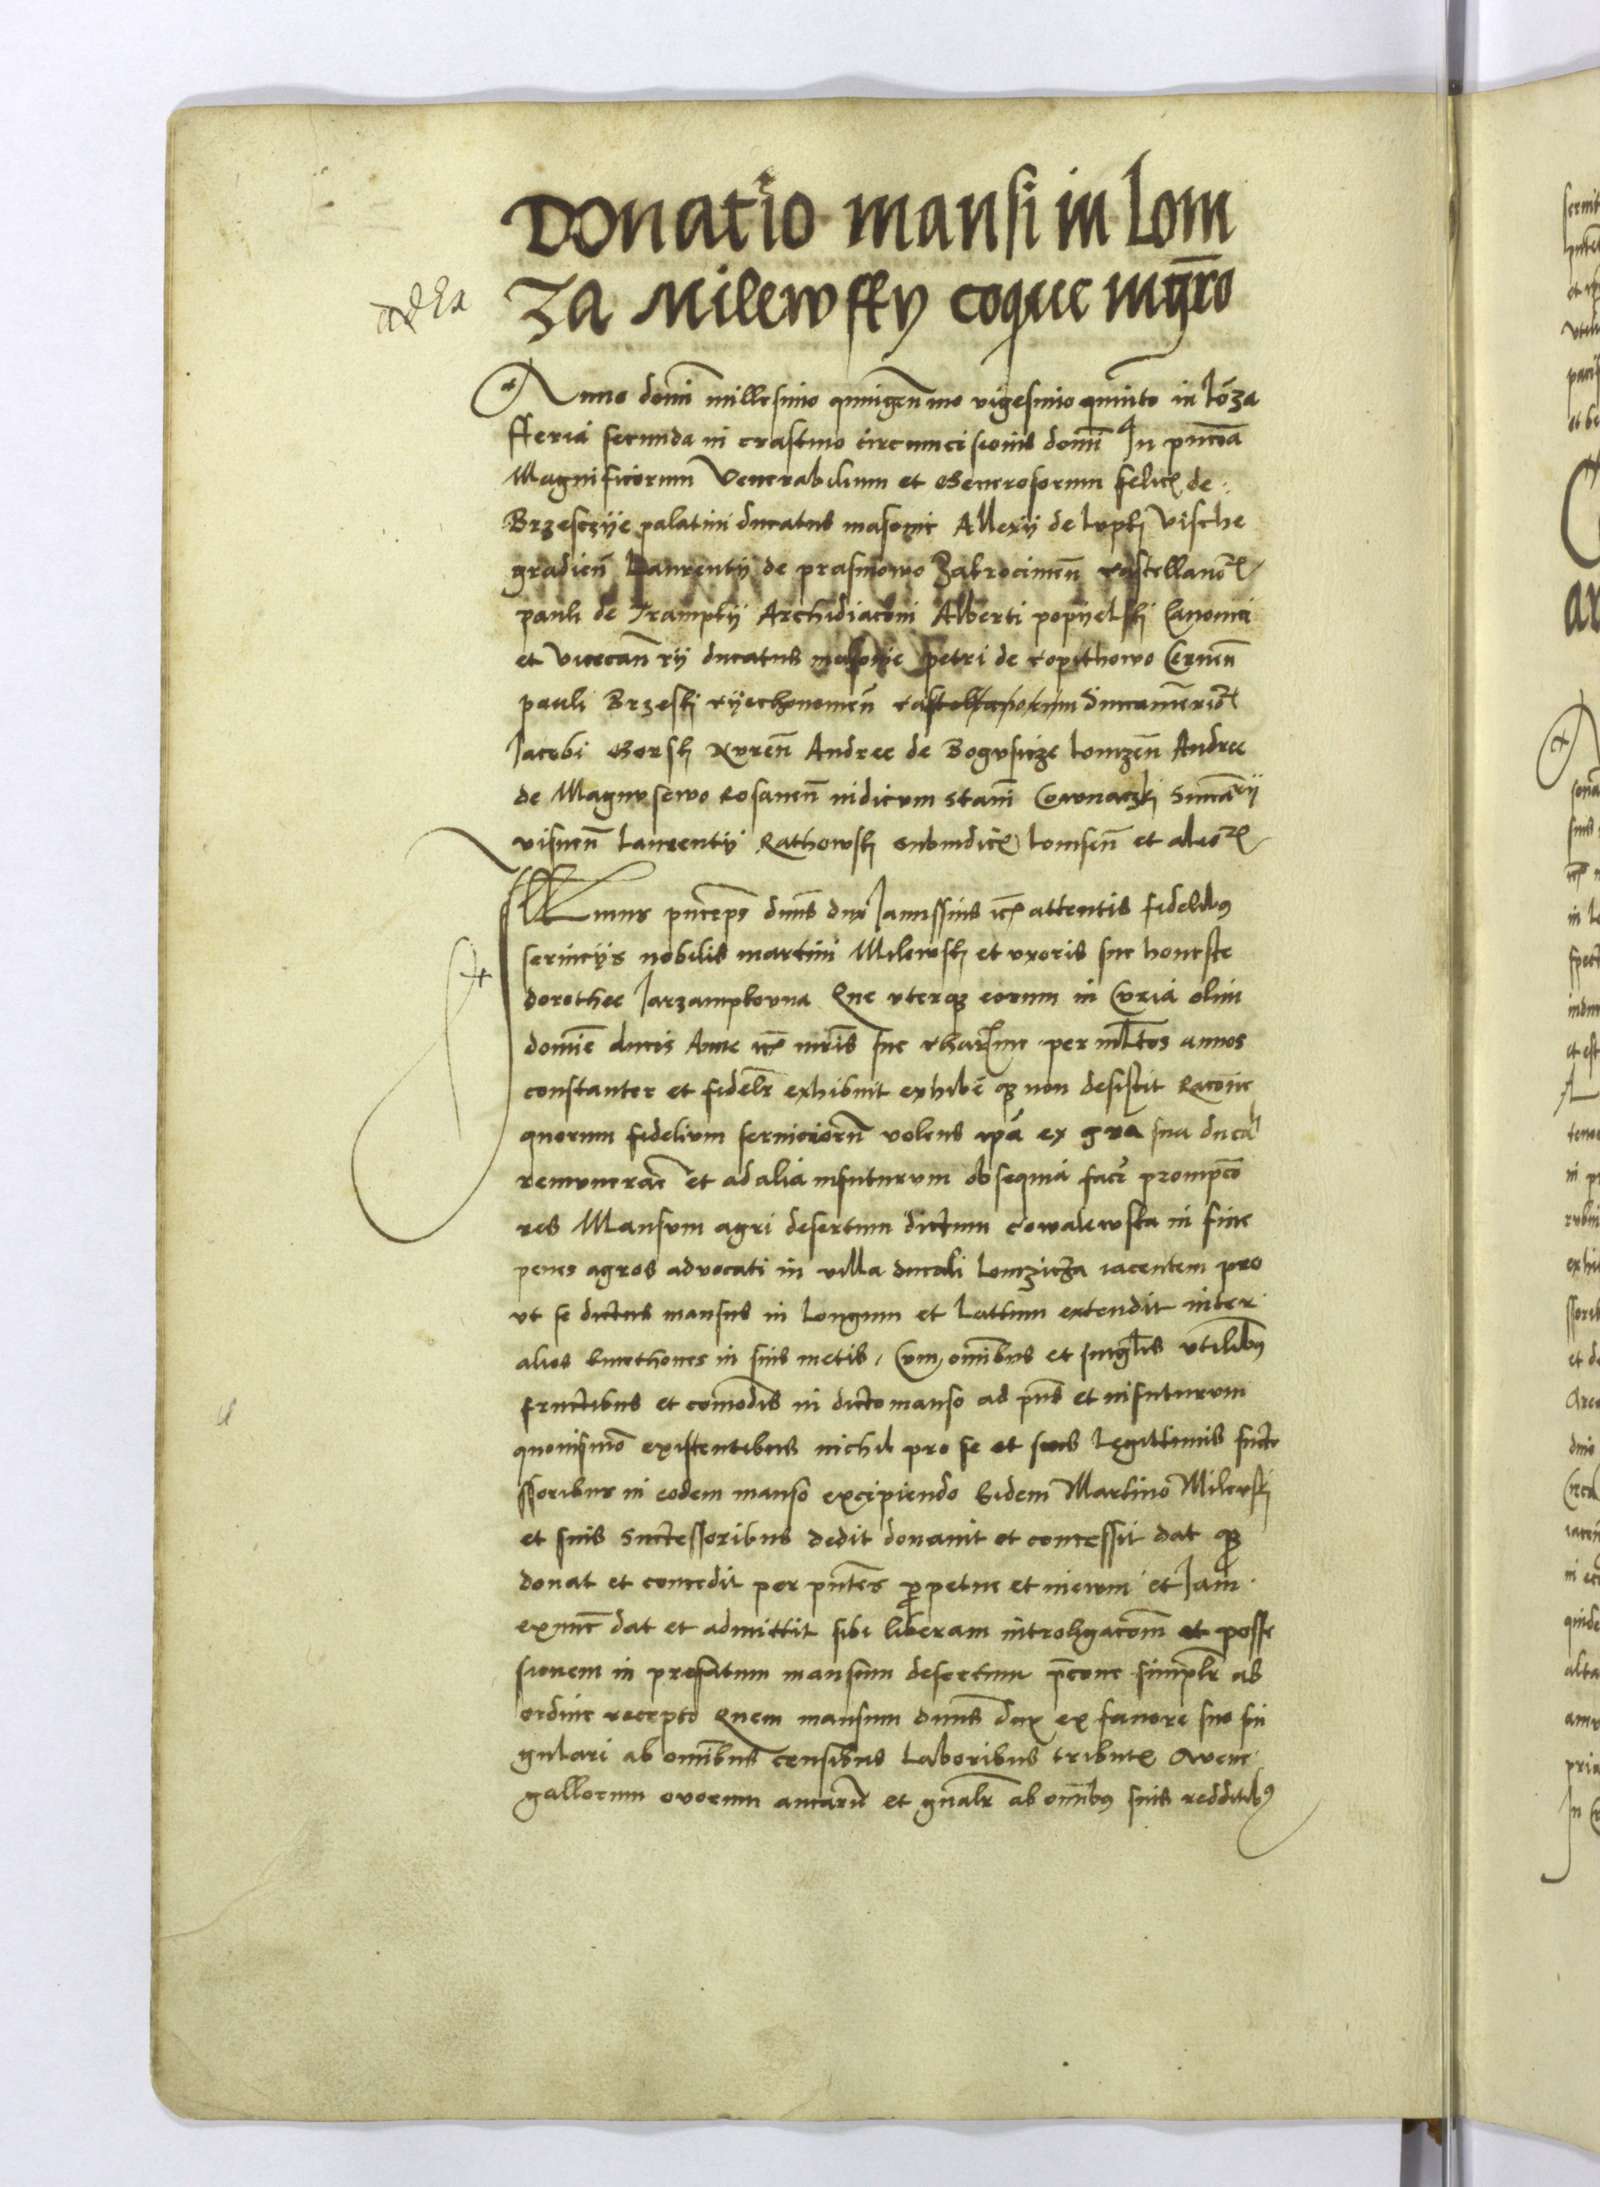 Donatio mansi in Lom
za Milewsky coque mgro
Anno domi millesimo quingen mo vigesimo quinto in Lomza
fferia secunda in crastino circumcisionis domi In pncia
Magnificorum Venerabilium et Generosorum felic de
Brzesczye palatini ducatus masovie Allexy de lupki Vische
gradien Laurentij de prasmowo Zakrocimen castellanor
pauli de Trampky Archidiaconi Alberti popyelski Canonici
et vicecan rij ducatus masovie petri de copithowo Cernen
pauli Brzeski cyechonomen castellanorum Succamerior
Jacobi Gorski Nuren Andree de Bogusicze lomzen Andree
de Magnusewo Rosanen iudicum Stani Sucarij
visnen Laurentij Rathowski subiudic lomsen et alior
princeps dnus dux Janussius etc attentis fidelibus
serviciis nobilis martini Milewski et uxoris sue honeste
dorothee Jarzampkovna Que uterque eorum in Curia olim
domine ducis Anne etc mris sue charisime per multos annos
constanter et fideliter exhibuit exhibe que non desistit Racione
quorum fidelium serviciorum volens ipsa ex gra sua ducali
remunerare et ad alia infuturum obsequia facere prompcio
res Mansum agri desertum dictum cowalewska in fine
penes agros advocati in villa ducali Lomzicza iacentem pro
ut se dictus mansus in longum et Latum extendit inter
alios kmethones in suis metis, Cum omnibus et singulis utilibus
fructibus et comodis in dicto manso ad pns et infuturum
quomodo existentibus nichil pro se et suis legittimis succe
ssoribus in eodem manso excipiendo Eidem Martino Milewski
et suis Successoribus dedit donavit et concessit dat que
donat et concedit per pntes perpetue et in evum et Jam
exnunc dat et admittit sibi liberam introligacom et posse
sionem in prefatum mansum desertum simplr ab
ordine recepto Quem mansum dnus dux ex favore suo sin
gulari ab omnibus censibus laboribus tribut Avene
gallorum ovorum ancarum et gnalr ab omnibus suis redditibus